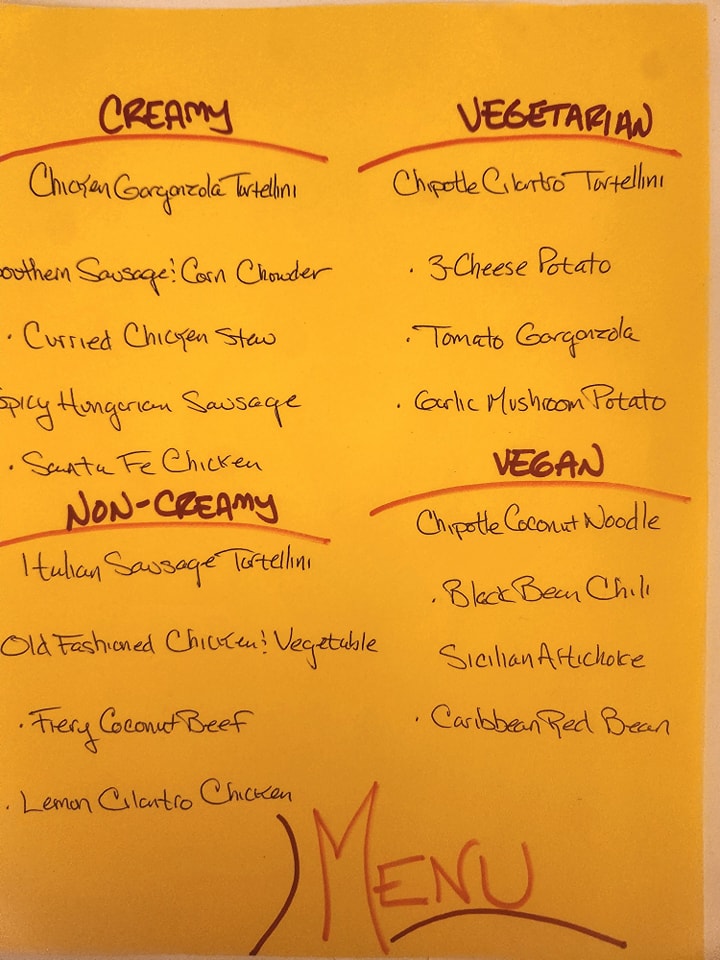 CREAMY
Chicken Gorgonzola Tortellini
Southern Sausage & Corn Chowder
· Curried Chicken Stew
Spicy Hungarian Sausage
· Santa Fe Chicken
NON-CREAMY
Italian Sausage Tortellini
Old Fashioned Chicken & Vegetable
· Fiery Coconut Beef
· Lemon Cilantro Chicken
VEGETARIAN
Chipotle Cilantro Tortellini
· 3-Cheese Potato
· Tomato Gorgonzola
· Garlic Mushroom Potato
VEGAN
Chipotle Coconut Noodle
· Black Bean Chili
Sicilian Artichoke
· Caribbean Red Bean
MENU